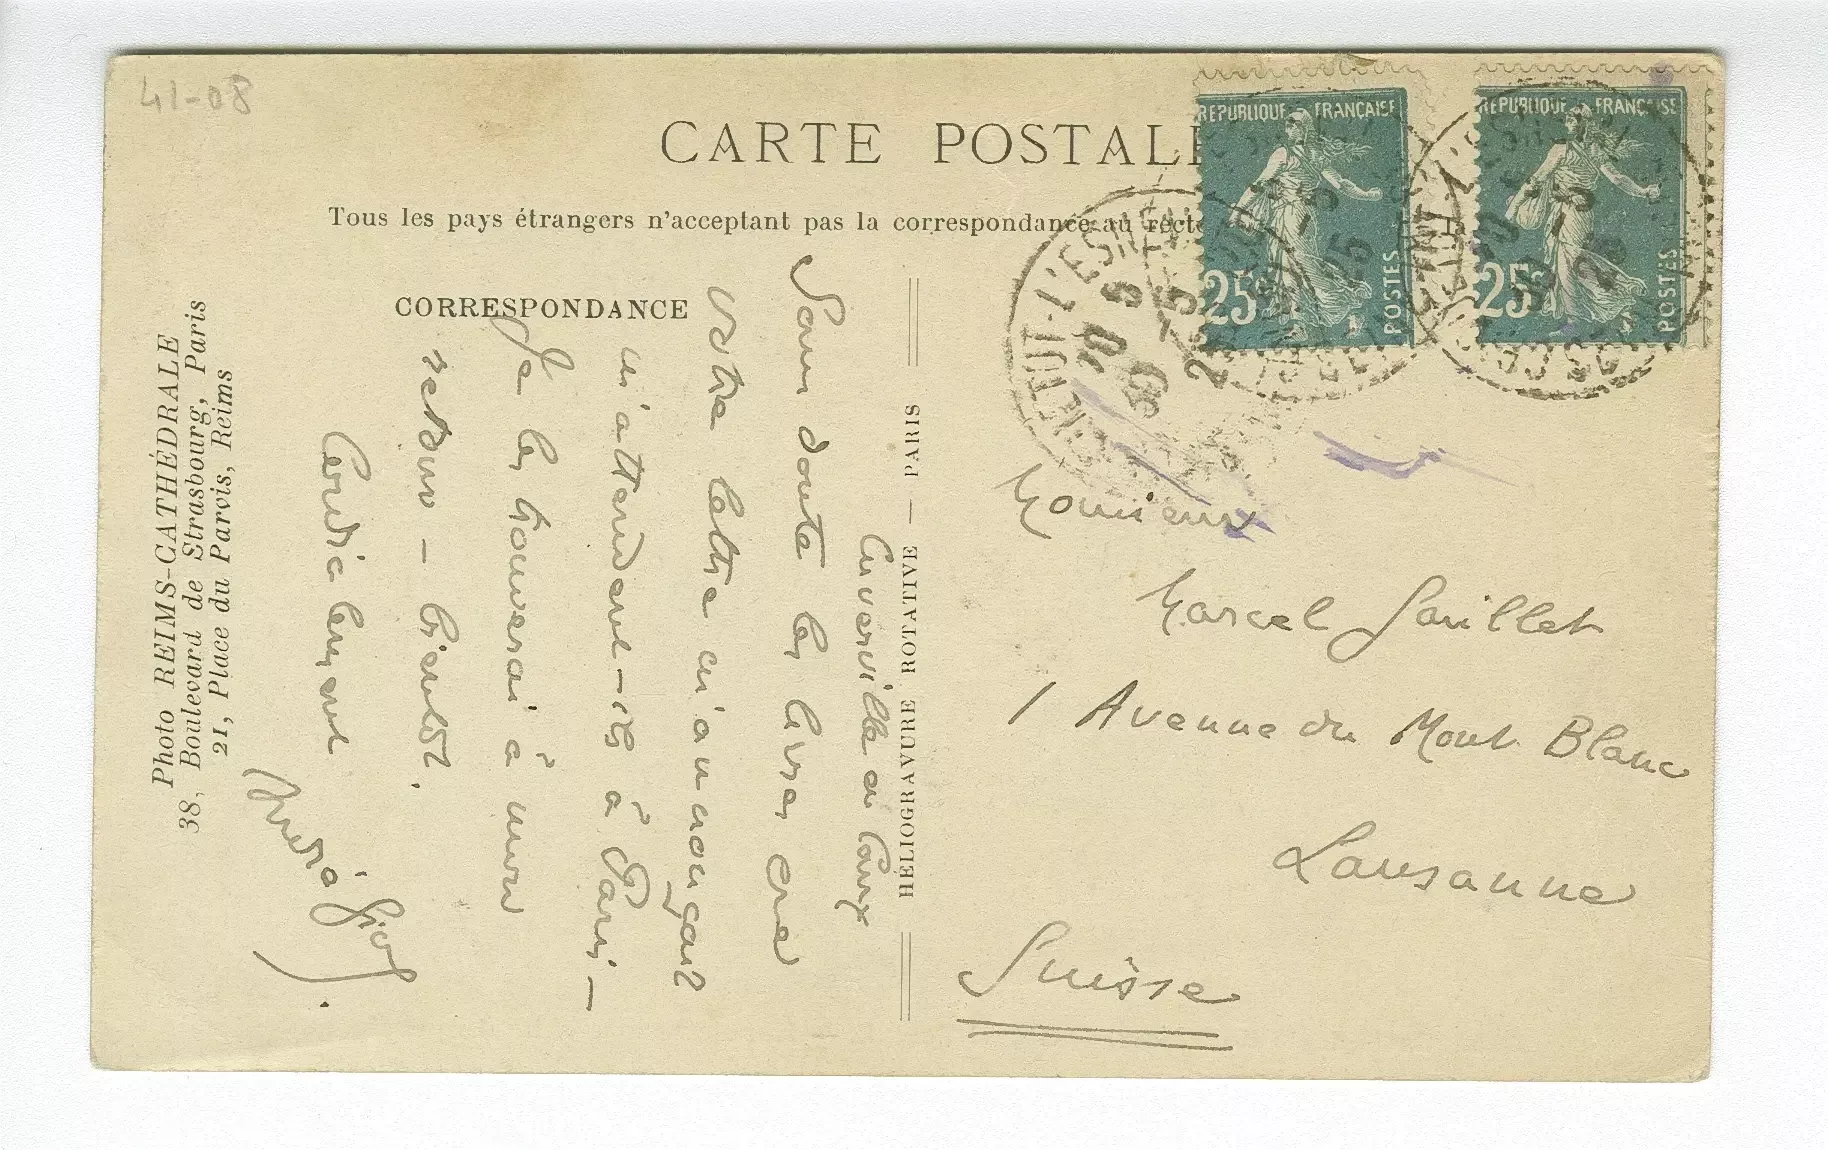 41-08
CARTE POSTALE
Tous les pays étrangers n'acceptent pas la correspondance au recto
CORRESPONDANCE
Cuverville en Caux
Sans doute les livres que
votre lettre m'annonçait
m'attendent-ils à Paris —
Je les trouverai à mon
retour — bientôt.
Cordialement
André Gide.
Photo REIMS-CATHÉDRALE
38, Boulevard de Strasbourg, Paris
21, Place du Parvis, Reims
HÉLIOGRAVURE ROTATIVE — PARIS
REPUBLIQUE FRANÇAISE
25c
POSTES
REPUBLIQUE FRANÇAISE
25c
POSTES
Monsieur
Marcel Gaillet
1 Avenue du Mont Blanc
Lausanne
Suisse